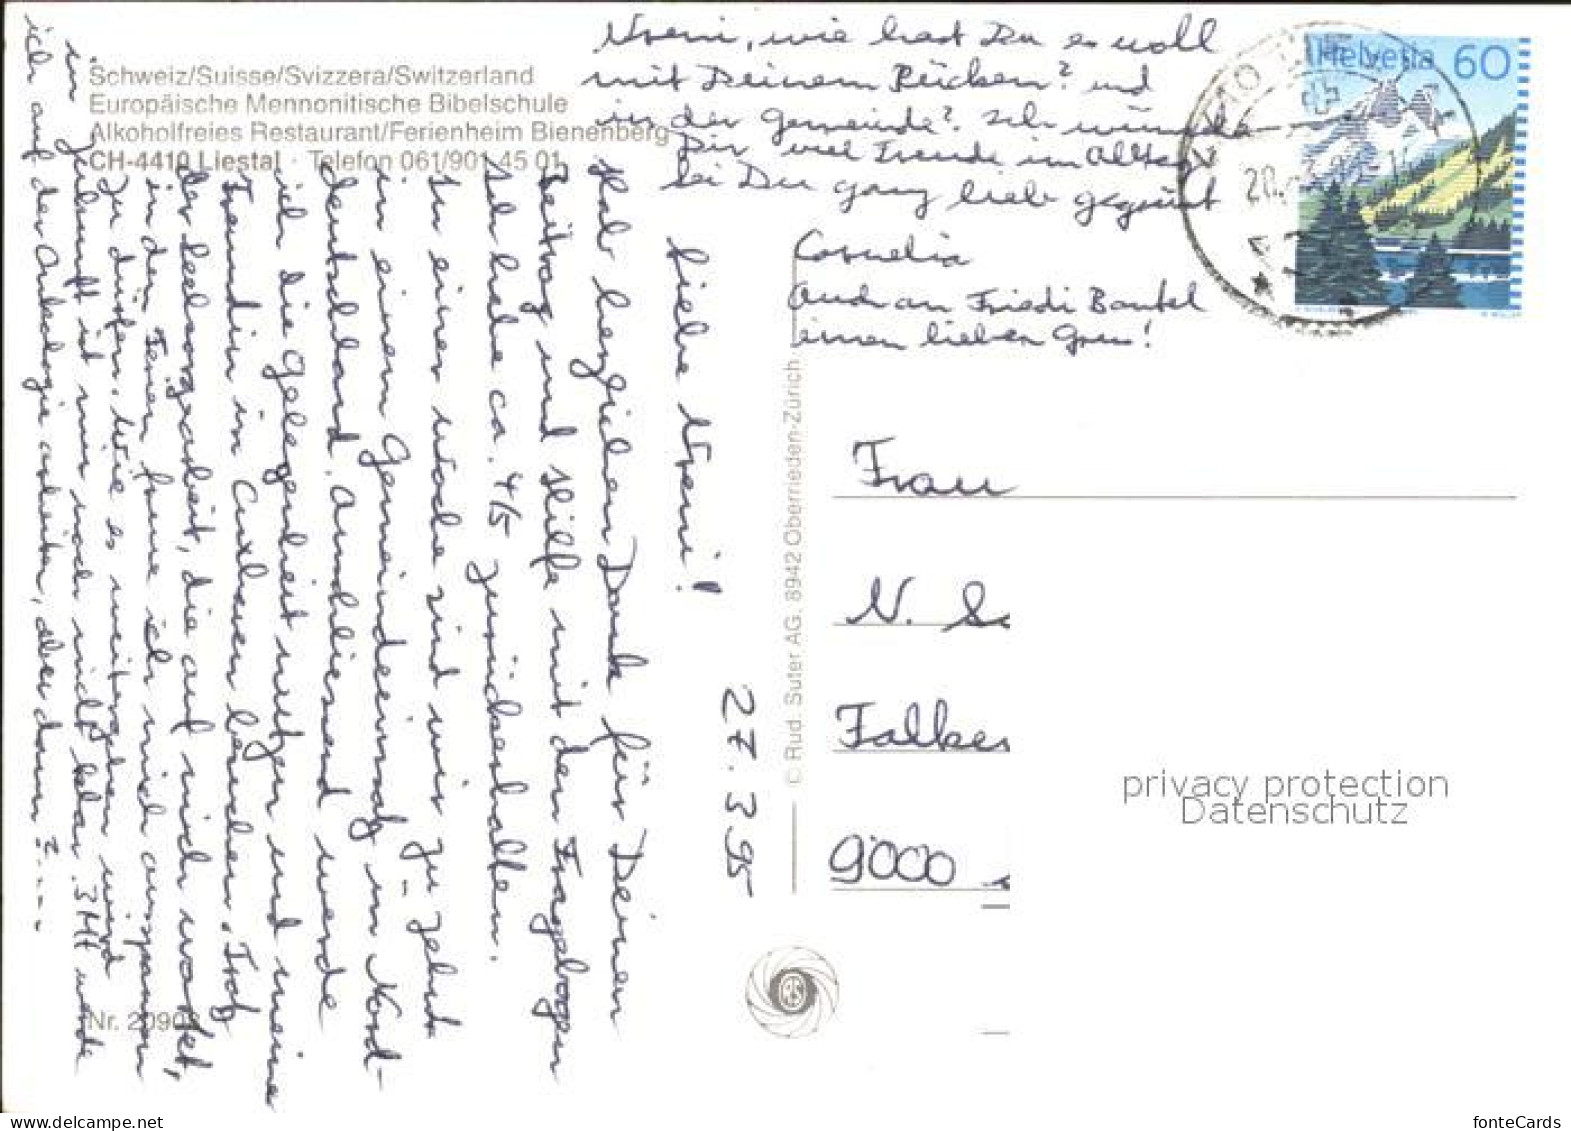 Schweiz/Suisse/Svizzera/Switzerland
Europäische Mennonitische Bibelschule
Alkoholfreies Restaurant/Ferienheim Bienenberg
CH-4410 Liestal · Telefon 061/901 45 01
27.3.95
Liebe Vreni!
Hab herzlichen Dank für Deinen
Beitrag und Hilfe mit dem Fragebogen
Ich habe ca. 4/5 zurückerhalten.
In einer Woche sind wir zu zehnt
in einem Gemeindeeinsatz in Nord-
deutschland. Anschliessend werde
ich die Gelegenheit nutzen und meine
Freundin in Cuxhaven besuchen. Trotz
der Seelsorgearbeit, die auf mich wartet,
in den Ferien freue ich mich ausspannen
zu dürfen. Wie es weitergehen wird
in Zukunft ist mir noch nicht klar. 3 Mt werde
ich auf der arbeiten, aber dann?....
Vreni, wie hast Du es wohl
mit Deinem Rücken? und
in der Gemeinde? Ich wünsche
Dir viel Freude im Alltag
sei Du ganz lieb gegrüsst
Cornelia
Auch an Friedi Bantel
einen lieben Gruss!
Helvetia 60
Frau
N. S
Falken
9000
© Rud. Suter AG. 8942 Oberrieden-Zürich
Nr. 20908
privacy protection
Datenschutz
fonteCards